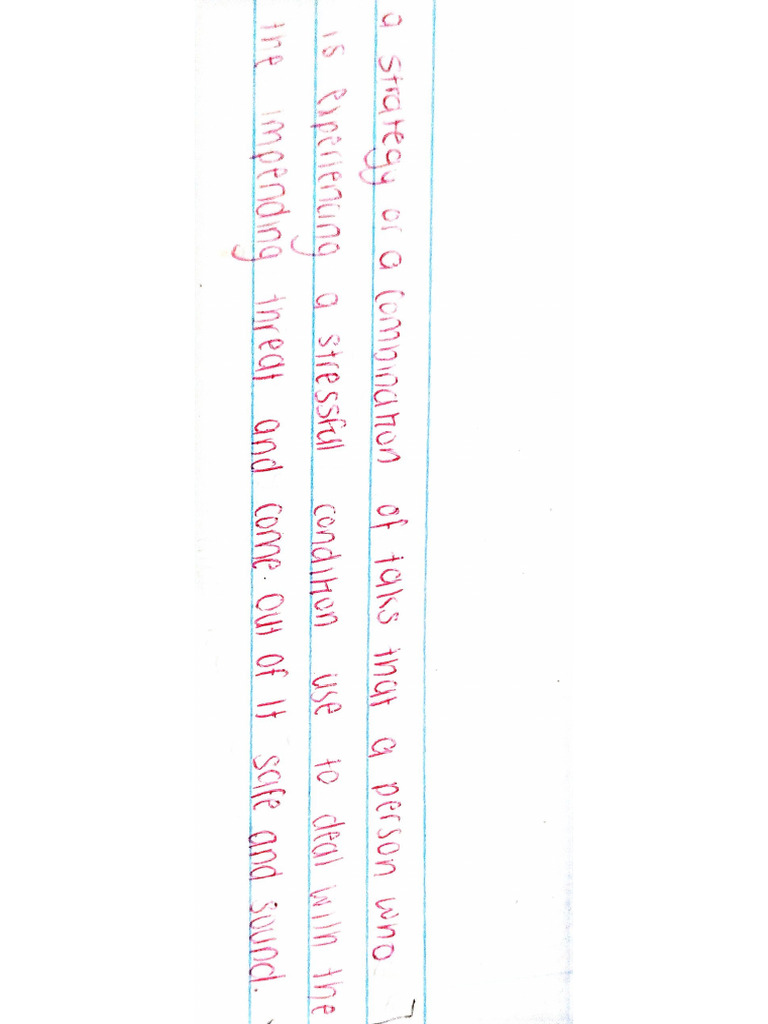 a strategy or a combination of taks that a person who
is experiencing a stressful condition use to deal with the
the impending threat and come out of it safe and sound.